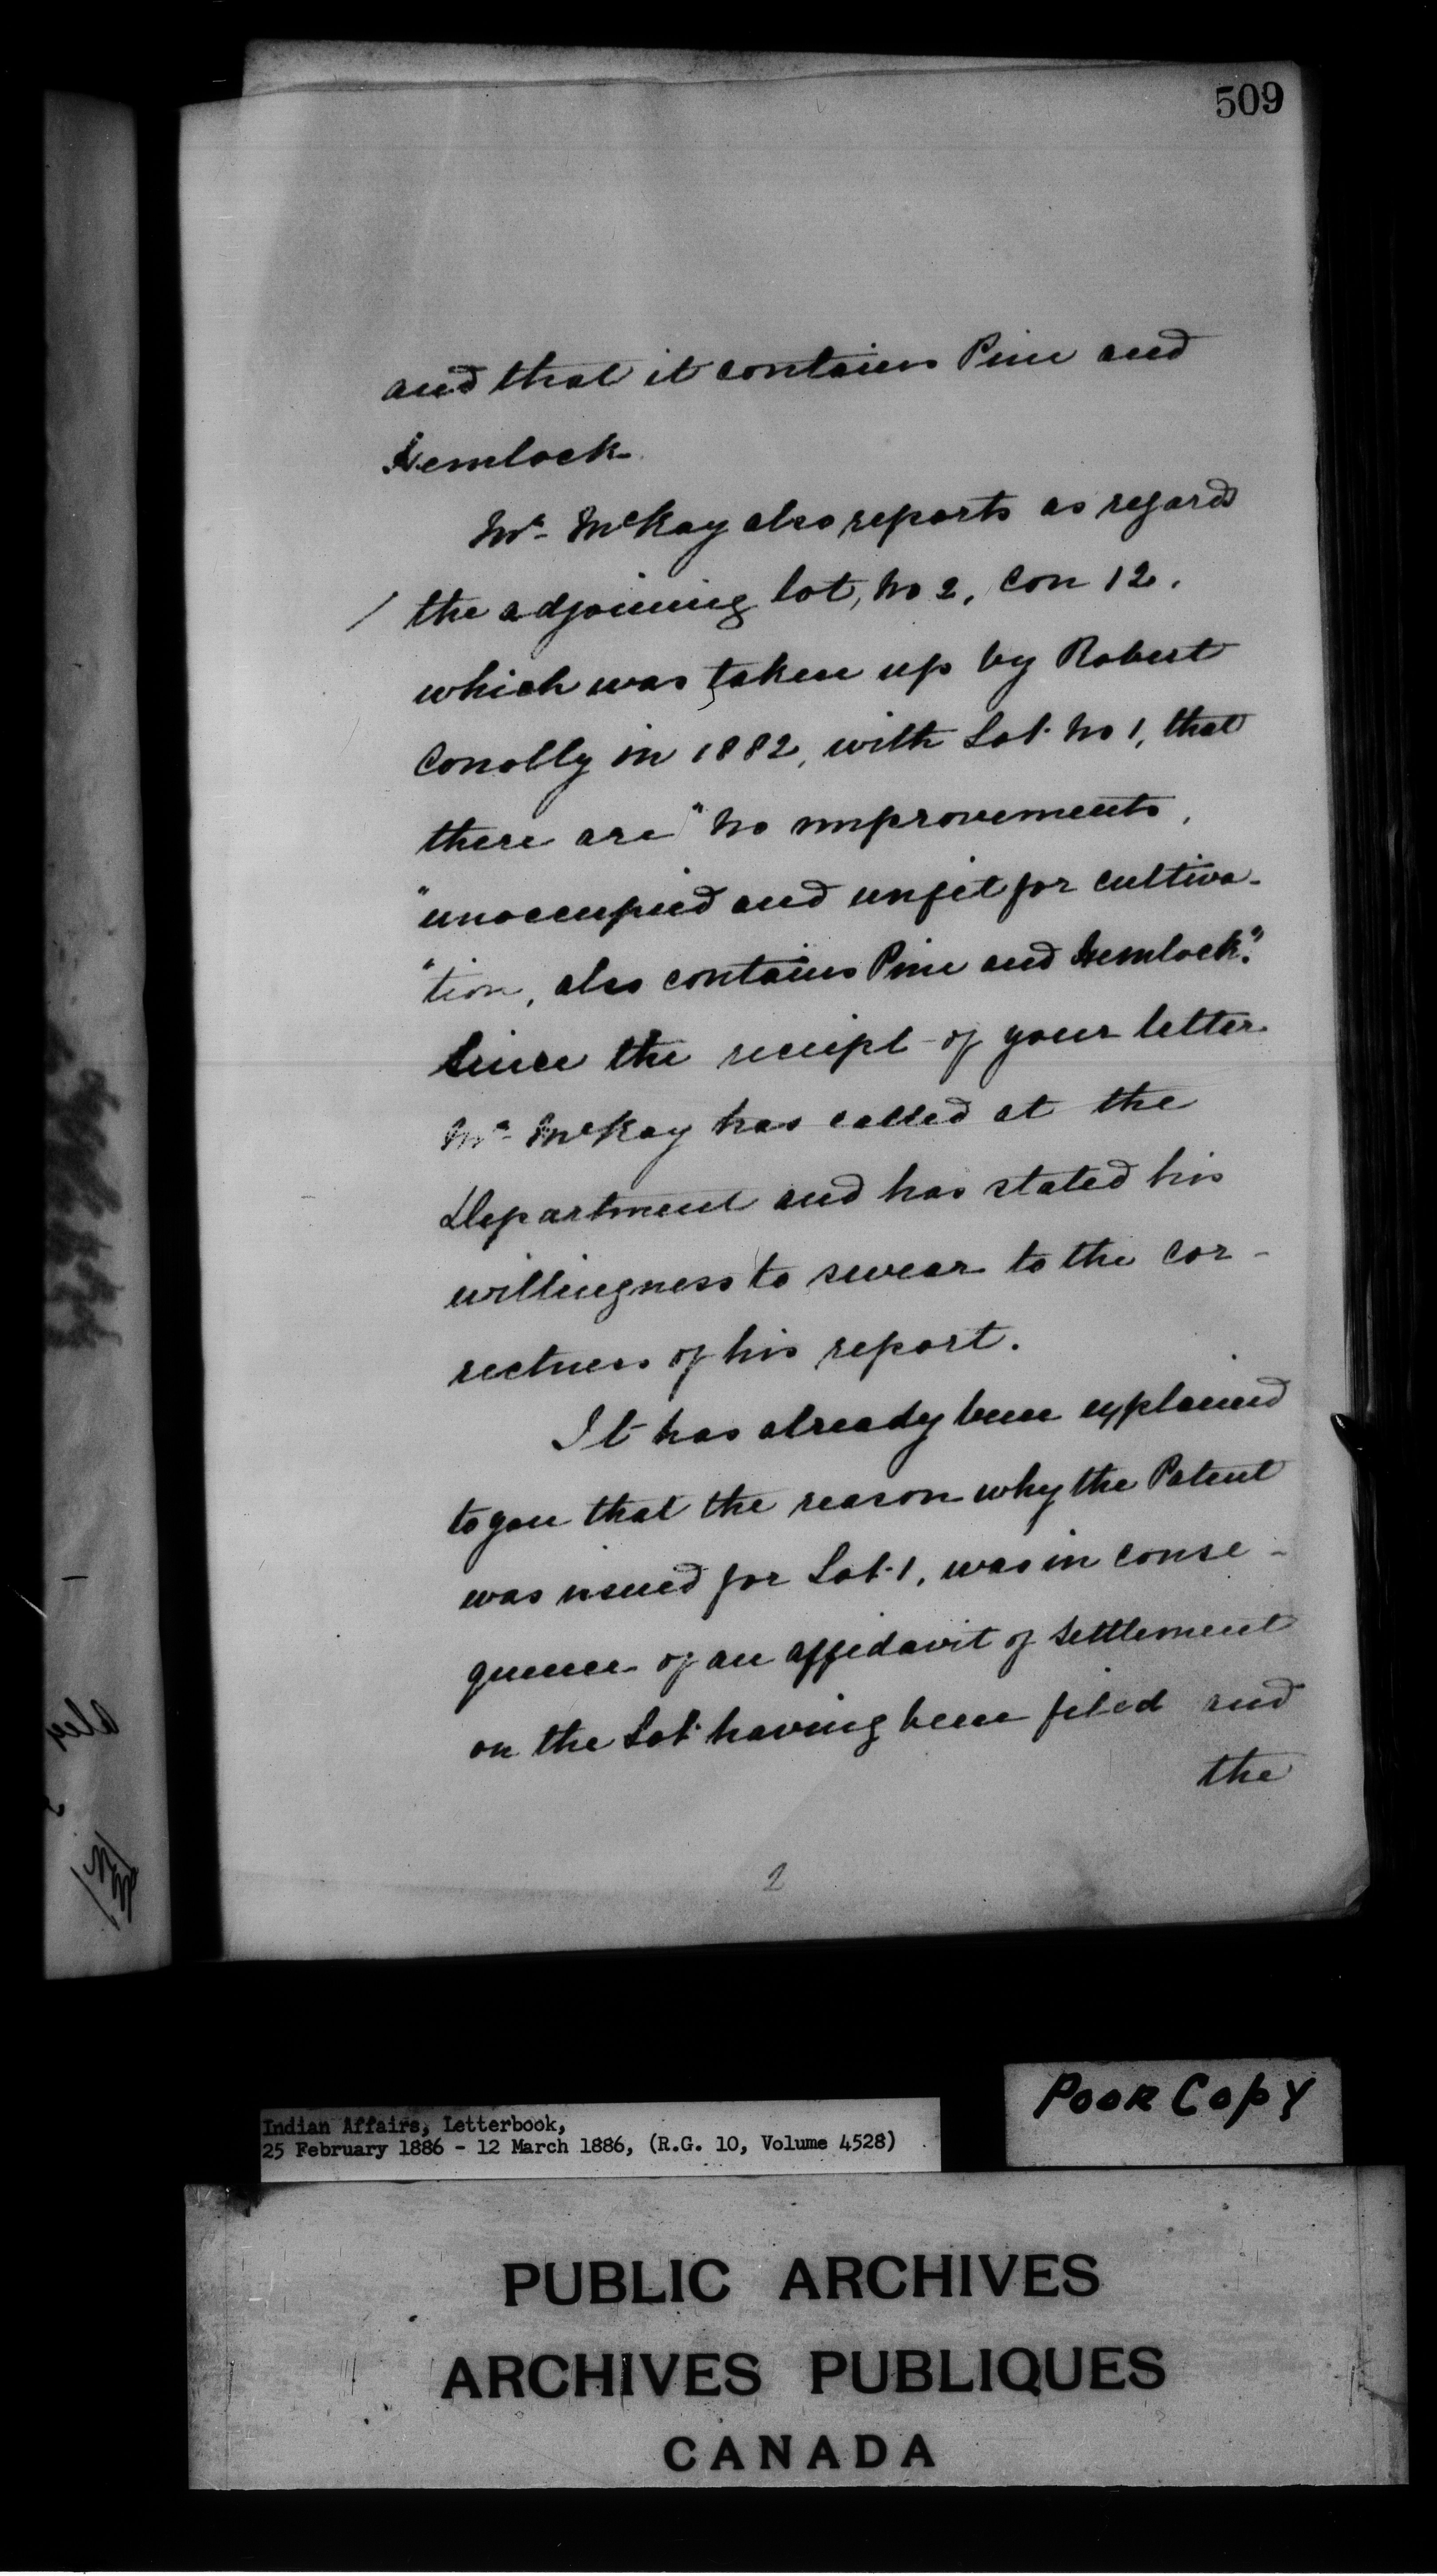 509
and that it contains Pine and
Hemlock
Mr. McKay also reports as regards
/ the adjoining lot, No 2, Con 12,
which was taken up by Robert
Conolly in 1882, with Lot No 1, that
there are "no improvements,
"unoccupied and unfit for cultiva-
"tion, also contains Pine and Hemlock."
Since the receipt of your letter
Mr. McKay has called at the
Department and has stated his
willingness to swear to the cor-
rectness of his report.
It has already been explained
to you that the reason why the Patent
was issued for Lot 1, was in conse-
quence of an affidavit of settlement
on the Lot having been filed and
the
2
POOR COPY
Indian Affairs, Letterbook,
25 February 1886 - 12 March 1886, (R.G. 10, Volume 4528)
PUBLIC ARCHIVES
ARCHIVES PUBLIQUES
CANADA